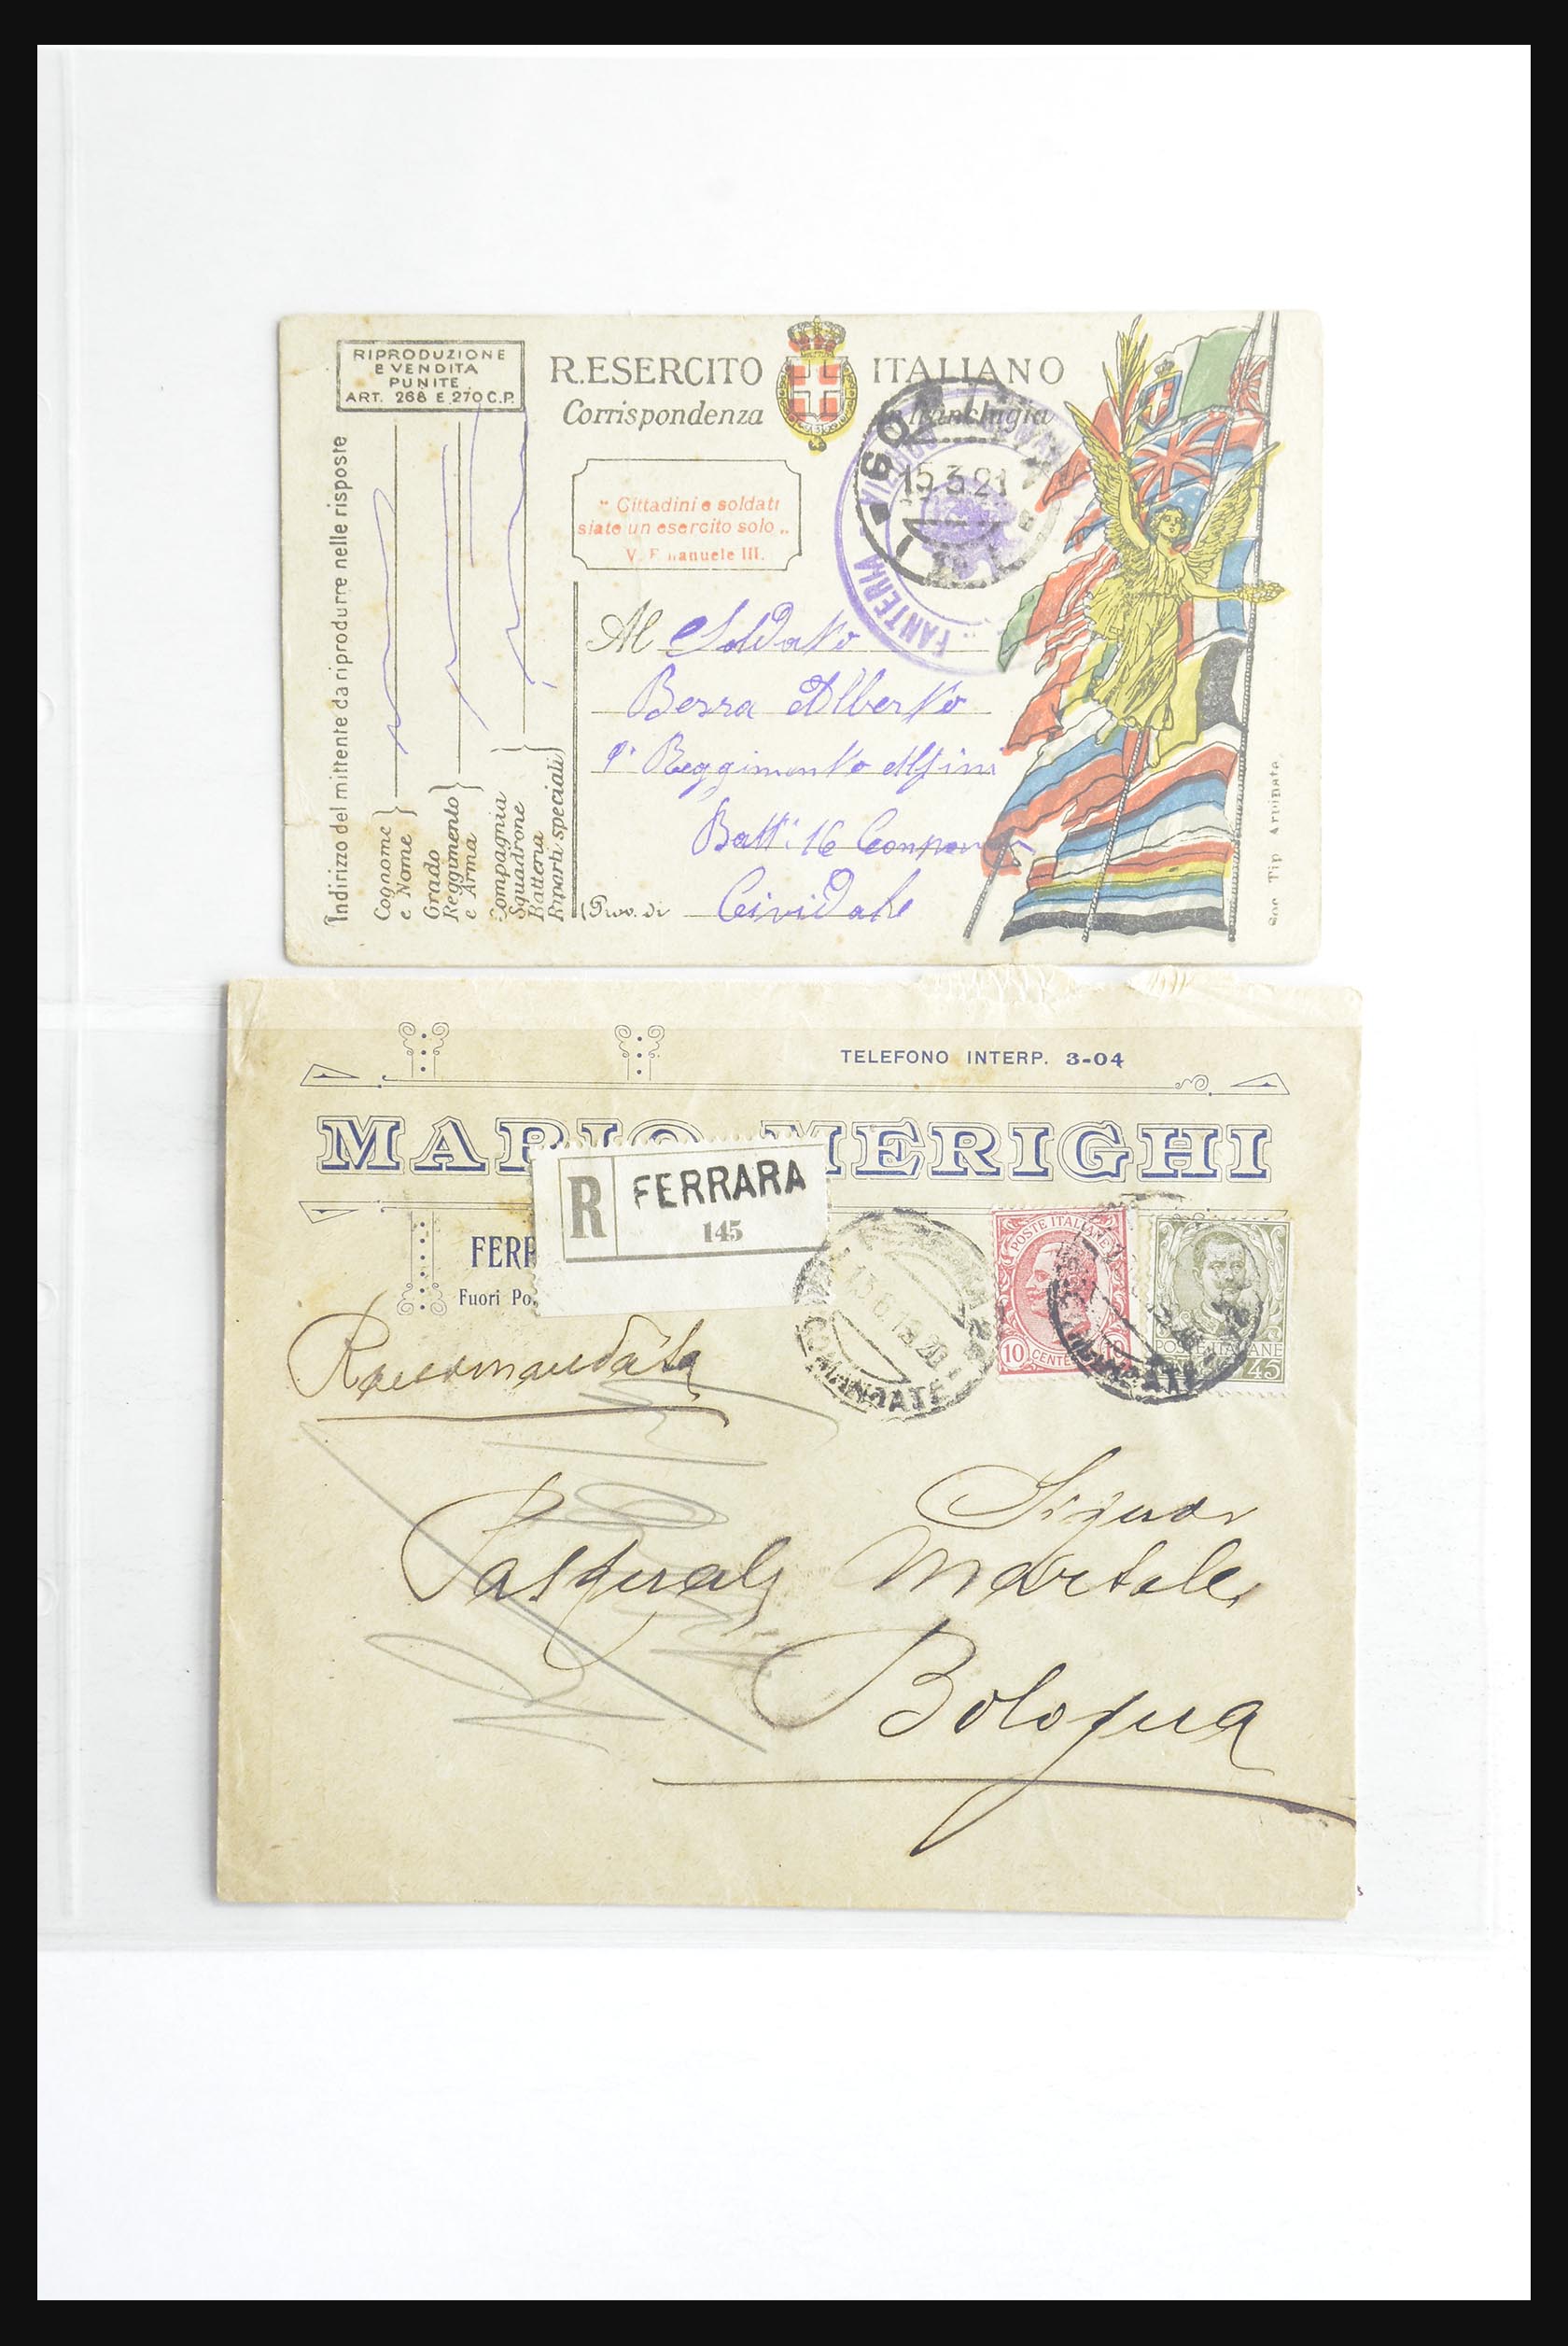 RIPRODUZIONE
E VENDITA
PUNITE
ART. 268 E 270 C.P.
R.ESERCITO ITALIANO
Corrispondenza in franchigia
" Cittadini e soldati
siate un esercito solo „
V. Emanuele III.
15 3 21
FANTERIA
Indirizzo del mittente da riprodurre nelle risposte
Cognome
e Nome
Grado
Reggimento
e Arma
Compagnia
Squadrone
Batteria
Riparti speciali
Al Soldato
Berra Alberto
Reggimento Alpini
Batt. 16 Compagnia
(Prov. di Cividale
Soc. Tip. Arpinate.
TELEFONO INTERP. 3-04
MARIO MERIGHI
R FERRARA
145
FERR
Fuori Po
POSTE ITALIANE
10 CENTE 10
POSTE ITALIANE
45
Raccomandata
Signor
Pasquale Martale
Bologna